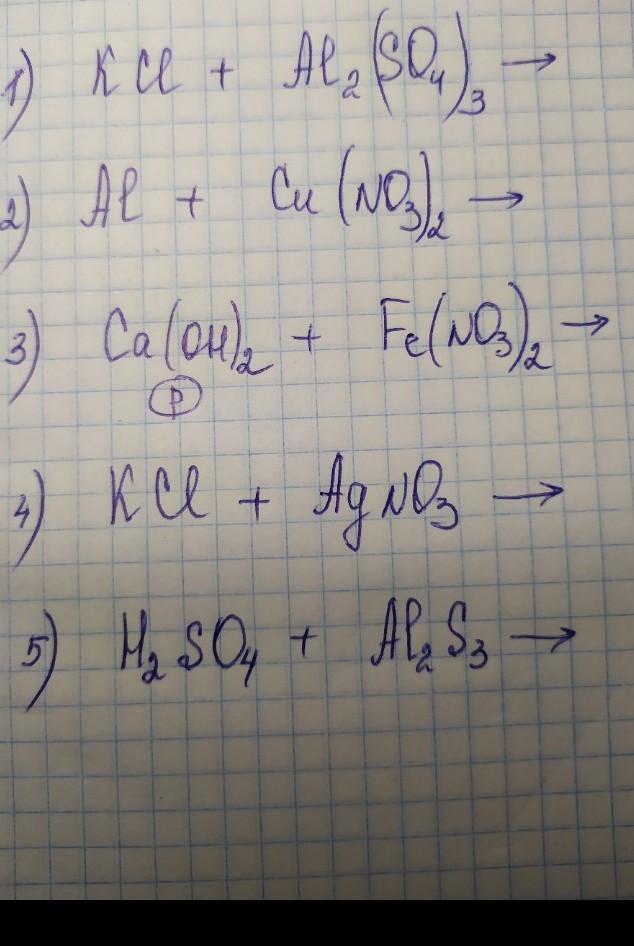 1) KCl + Al₂(SO₄)₃ →
2) Al + Cu(NO₃)₂ →
3) Ca(OH)₂ + Fe(NO₃)₂ →
р
4) KCl + AgNO₃ →
5) H₂SO₄ + Al₂S₃ →